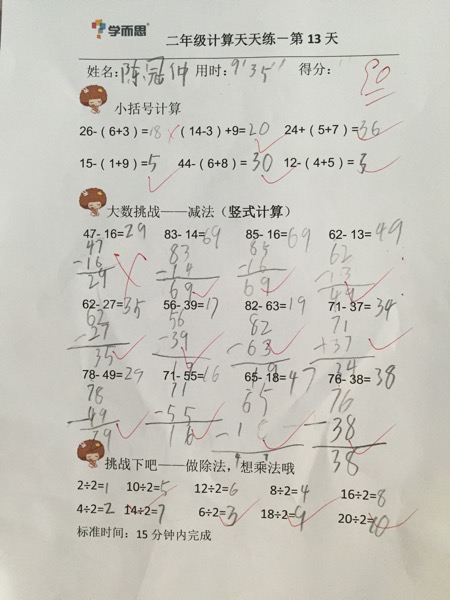 学而思
二年级计算天天练－第 13 天
姓名:陈冠仲 用时:9'35'' 得分: 90
小括号计算
26-（6+3）=18 (14-3）+9=20 24+（5+7）=36
15-（1+9）=5 44-（6+8）=30 12-（4+5）=3
大数挑战——减法（竖式计算）
47- 16=29 83- 14=69 85- 16=69 62- 13=49
47 83 85 62
-16 -14 -16 -13
29 69 69 49
62- 27=35 56- 39=17 82- 63=19 71- 37=34
62 56 82 71
-27 -39 -63 +37
35 17 19 34
78- 49=29 71- 55=16 65- 18=47 76- 38=38
78 71 65 76
-49 -55 -1 -38
29 16 38
挑战下吧——做除法，想乘法哦
2÷2=1 10÷2=5 12÷2=6 8÷2=4 16÷2=8
4÷2=2 14÷2=7 6÷2=3 18÷2=9 20÷2=10
标准时间：15 分钟内完成